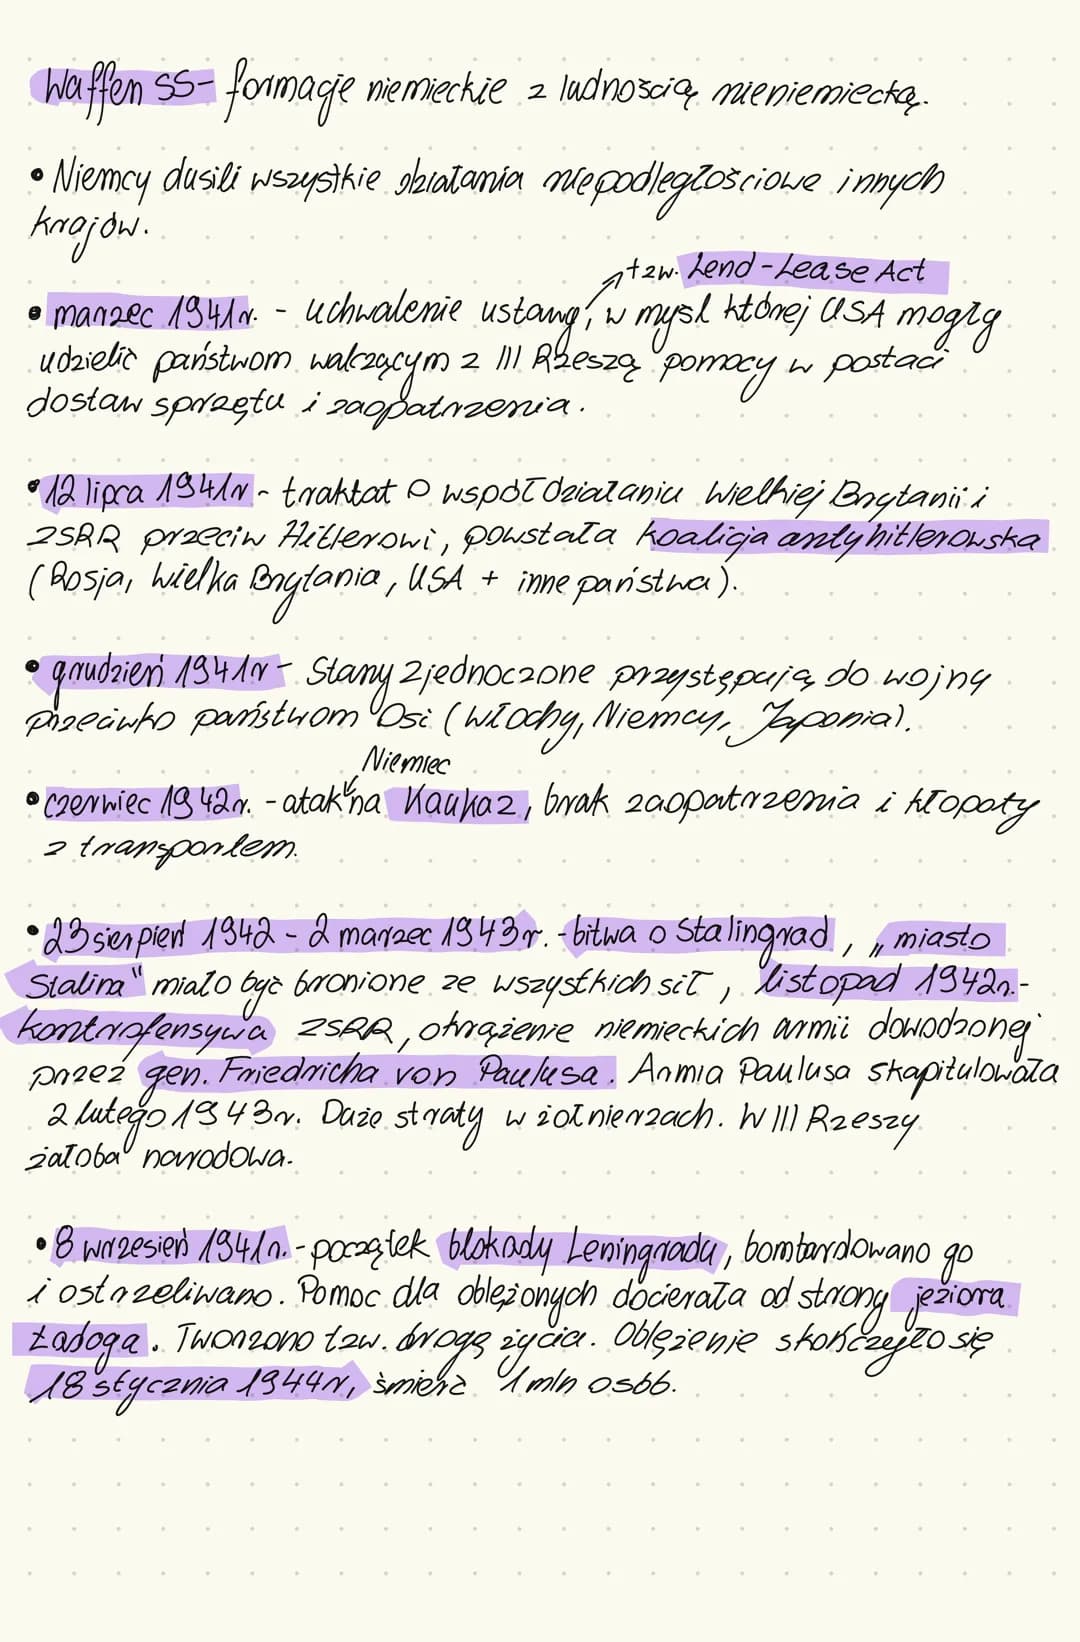 Waffen SS- formacje niemieckie z ludnością nieniemiecką.
• Niemcy dusili wszystkie działania niepodległościowe innych
krajów.
tzw. Lend-Lease Act
• marzec 1941r. - uchwalenie ustawy, w myśl której USA mogły
udzielić państwom walczącym z III Rzeszą pomocy w postaci
dostaw sprzętu i zaopatrzenia.
• 12 lipca 1941r - traktat o współdziałaniu Wielkiej Brytanii i
ZSRR przeciw Hitlerowi, powstała koalicja antyhitlerowska
(Rosja, Wielka Brytania, USA + inne państwa).
• grudzień 1941r - Stany Zjednoczone przystępują do wojny
przeciwko państwom Osi (Włochy, Niemcy, Japonia).
Niemiec
• czerwiec 1942r. - atak na Kaukaz, brak zaopatrzenia i kłopoty
z transportem.
• 23 sierpień 1942 - 2 marzec 1943r. - bitwa o Stalingrad, „miasto
Stalina" miało być bronione ze wszystkich sił, listopad 1942r.-
kontrofensywa ZSRR, okrążenie niemieckich armii dowodzonej
przez gen. Friedricha von Paulusa. Armia Paulusa skapitulowała
2 lutego 1943r. Duże straty w żołnierzach. W III Rzeszy
żałoba narodowa.
• 8 wrzesień 1941r. - początek blokady Leningradu, bombardowano go
i ostrzeliwano. Pomoc dla oblężonych docierała od strony jeziora
Ładoga. Tworzono tzw. drogę życia. Oblężenie skończyło się
18 stycznia 1944r, śmierć 1 mln osób.